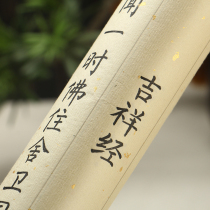 吉祥经
闻一时佛住舍卫